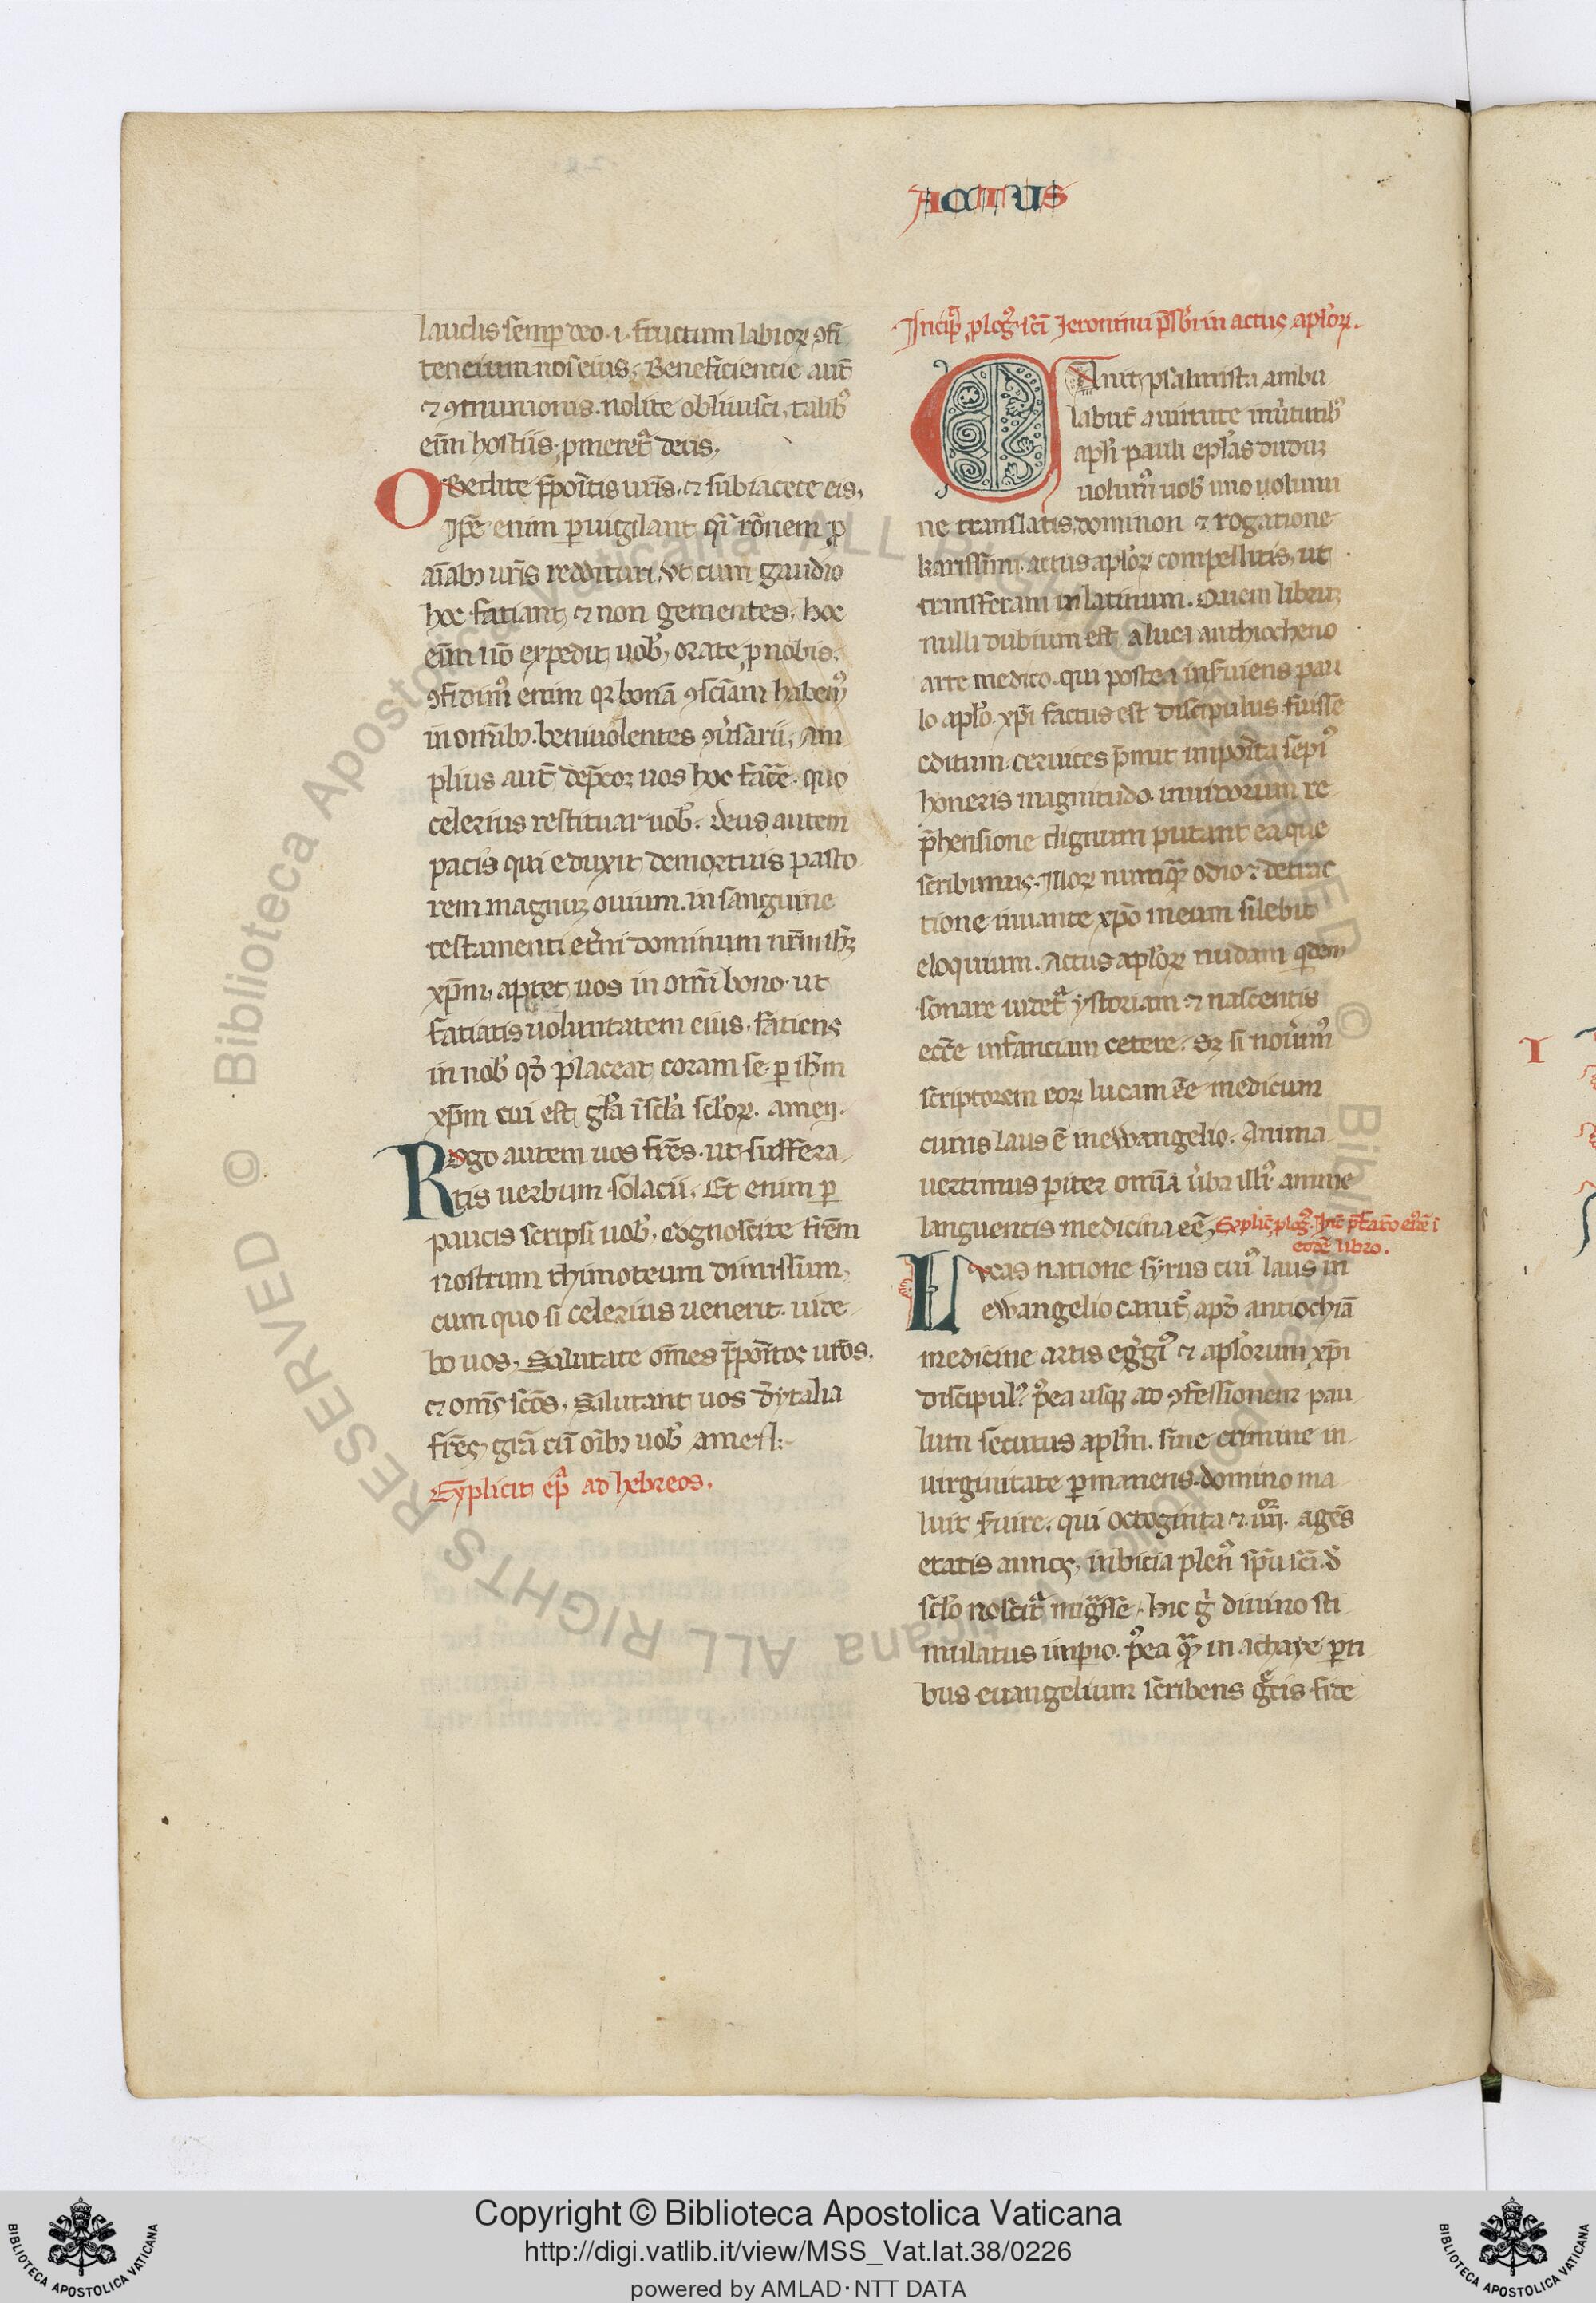 ACTUS
laudis semp̲ deo .i. fructum labioꝝ ꝯfi
tencium nomini eius. Beneficiencie aut̄
⁊ ꝯmunionis nolite obliuisci. talibꝰ
eni̅m hostiis ꝓmeret᷑ deus.
OBedite p̄po͂itis ur̄is. ⁊ subiacete eis.
Ip̄i enim p̲uigilant q̄si ro̅nem ꝓ
ai̅abꝫ ur̄is reddituri. Vt cum gaudio
hoc fatiant ⁊ non gementes. hoc
eni̅m no̅ expedit uob̵. orate ꝓ nobis.
ꝯfidimꝰ enim qꝛ bona̅ ꝯscia̅m habemꝰ
in omnibꝫ. beniuolentes ꝯũsarii. Am
plius aut̄ dep̄cor uos hoc fac̄e. quo
celerius restituar uob̵. Deus autem
pacis qui eduxit demortuis pasto
rem magnuꝫ ouium. in sanguine
testamenti et̄ni dominum nr̄m ih̄ꝫ
xp̄m. aptet uos in omi̅ bono. ut
fatiatis uoluntatem eius. fatiens
in nob̵ qđ placeat coram se. p̲ ih̄m
xp̄m cui est gl̄a i̅ sc̄la sc̄loꝝ. amen.
ROgo autem uos fr̄es. ut suffera
tis uerbum solacii. Et enim p̲
paucis scripsi uob̵. Cognoscite fr̄em
nostrum thimoteum dimissum.
cum quo si celerius uenerit. uide
bo uos. Salutate om̄es p̄po͂itos ur̄os.
⁊ om̄s sc̄os. Salutant uos d̵ ytalia
fr̄es. gr̄a cu̅ oi̅bꝫ uob̵ amen.
Explicit ep̄a ad hebreos.
Incip̄ plogꝰ sc̄i Jeronimi p̄sb̄ri in actus apl̄oꝝ.
CAnit psalmista ambu
labu̅t auirtute in ũtutibꝰ
apl̄i pauli epl̄as duduꝫ
uolumꝰ uob̵ uno uolumi
ne translatis. dominon ⁊ rogatione
karissimi. actus apl̄oꝝ compellitis. ut
transferam in latinum. Quem libruꝫ
nulli dubium est aluca anthiocheno
arte medico. qui postea insẽuiens pau
lo apl̄o. xp̄i factus est discipulus fuisse
editum. ceruices p̄mit impo͂ita sepiꝰ
honeris magnitudo. inuidorum re
p̄hensione dignum putant ea que
scribimus. Illoꝝ nunq̄ꝫ odio ⁊ detrac
tione iuuante xp̄o meum silebit
eloquium. Actus apl̄oꝝ nudam qͥdem
sonare uidet᷑ ystoriam ⁊ nascentis
ecc̄e infanciam cetere. Sꝫ si nouimꝰ
scriptorem eoꝝ lucam ee̅ medicum
cuius laus e̅ in ewangelio. Anima
uertimus p̲iter omi̅a ũba illiꝰ anime
languentis medicina ee̅. Explic̄ plogꝰ. Inc̄ p̄fac̄o eiꝰde̅ i̅
eode̅ libro.
LUcas natione syrus cuiꝰ laus in
ewangelio canit᷑ apđ antiochia̅
medicine artis eg̃giꝰ ⁊ apl̄orum xp̄i
discipulꝰ. pꝰea usqꝫ ad ꝯfessionem pau
lum secutus apl̄m. sine crimine in
uirginitate p̲manens domino ma
luit s̃uire. qui octoginta ⁊ iiiior. agens
etatis annos. inbitia plenꝰ sp̄u sc̄o. d̵
sc̄lo noscit᷑ migͣsse. hic gͥ diuino sti
mulatus imp̲io. pꝰea q̄ꝫ in achaye p̲ti
bus euangelium scribens gͤcis fide
I
Copyright © Biblioteca Apostolica Vaticana
http://digi.vatlib.it/view/MSS_Vat.lat.38/0226
powered by AMLAD·NTT DATA
BIBLIOTECA APOSTOLICA VATICANA
BIBLIOTECA APOSTOLICA VATICANA
© Biblioteca Apostolica Vaticana ALL RIGHTS RESERVED © Biblioteca Apostolica Vaticana ALL RIGHTS RESERVED